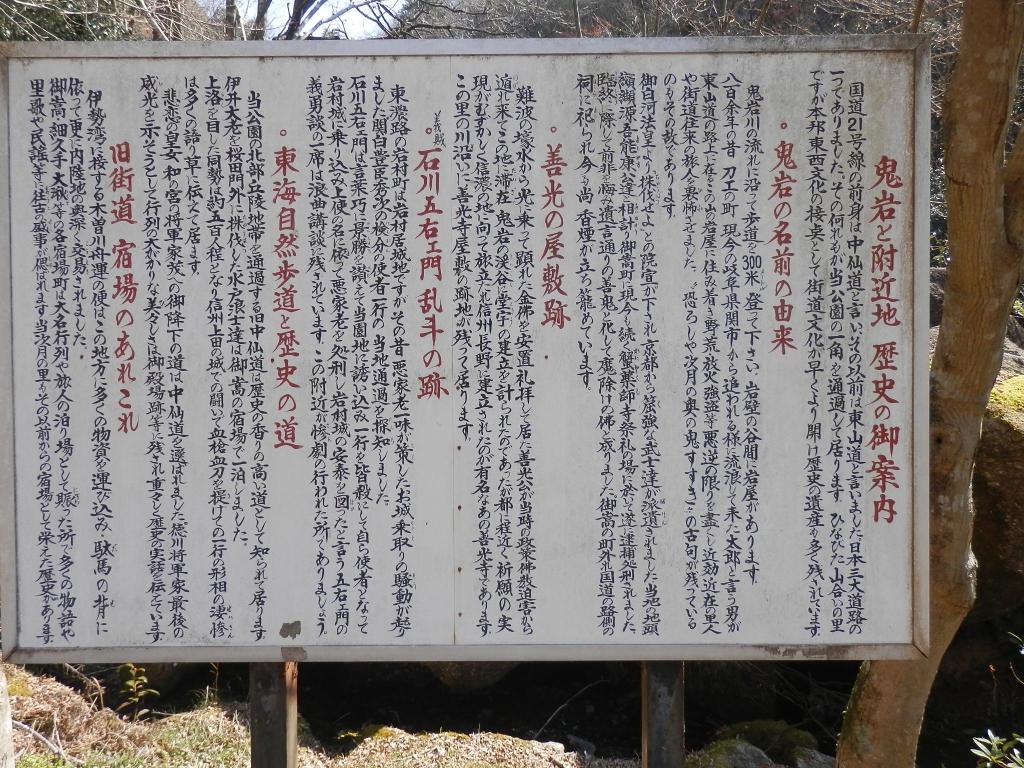 鬼岩と附近地 歴史の御案内
国道21号線の前身は中仙道と言い、その以前は東山道と言いました日本三大道路の
一つでありました。その何れもが当公園の一角を通過して居ります ひなびた山合いの里
ですが本邦東西文化の接点として街道文化が早くより開け歴史の遺産が多く残されています
。鬼岩の名前の由来
鬼岩川の流れに沿って歩道を300米登って下さい 岩壁の谷間に岩屋があります
八百余年の昔 刀工の町 現今の岐阜県関市から追われる様に流浪して来た太郎と言う男が
東山道の要上に在るこの岩屋に住み着き野荒放火強盗等悪逆の限りを盡くし近効近在の里人
や街道往来の旅人を裏怖させました、恐ろしや次月の奥の鬼すすき〟の古句が残っている
のもその故であります
御白河法皇より株伐せよとの院宣が下され京都から筺強な武士達が派遣されました当地の地頭
纐纈源吾能康公達と相計り御嵩町に現今も続く蟹薬師寺祭礼の場に於て遂に逮捕処刑されました
臨終に際し前非を悔み遺言通りの善鬼と化して魔除けの佛と成りました御嵩の町外れ国道の路側の
祠に祀られ今尚香煙が立ち籠めています
。善光の屋敷跡
難波の塚水から光に乗って顕れた金佛を安置し礼拝して居た善光公が当時の政策佛教迫害から
逃れ来てこの地に滞在 鬼岩の渓谷に堂宇の建立を計られたのであったが都に程近く祈願の実
現がむずかしく信濃の地に向って旅立たれ信州長野に建立されたのが有名なあの善光寺であります
この里の川沿いに善光寺屋敷の跡地が残って居ります
義賊
。石川五右エ門 乱斗の跡
東濃路の岩村町は岩村居城地ですがその昔悪家老一味が策したお城乗取りの騒動が起り
ました関白豊臣秀次の検分の使者一行の当地通過を探知しました
石川五右エ門は言葉巧に景勝を讃えて当園地に誘い込み一行を皆殺にして自ら使者となって
岩村城に乗り込み上使の名に依って悪家老を処刑し岩村城の安泰を図ったと言う五右エ門の
義勇談の一席は浪曲講談に残されています この附近が惨劇の行われた所でありましょう
。東海自然歩道と歴史の道
当公園の北部丘陵地帯を通過する旧中仙道は歴史の香りの高い道として知られて居ります
伊井大老を桜田門外に株伐した水戸浪士達は御嵩の宿場で一泊しました
上洛を目した同勢は約五百人程となり信州上田の城での闘いで血槍血刀を提げての一行の形相の凄惨
は多くの語り草に伝えて居ます
悲恋の皇女和の宮の将軍家茂への御降下の道は中仙道を選ばれました徳川将軍家最後の
威光を示そうとして行列の大がかりな美々しさは御殿場跡等に残され重々しく歴史の実話を伝えています
旧街道 宿場のあれこれ
伊勢湾に接する木曽川舟運の便はこの地方に多くの物資を運び込み 駄馬の背に
依って更に内陸地の奥深く交易されました。
御嵩、細久手、大湫等の各宿場町は大名行列や旅人の泊り場として賑った所で多くの物語や
里歌や民謡等に往古の盛事が偲ばれます当次月の里もその以前からの宿場として栄えた歴史があります